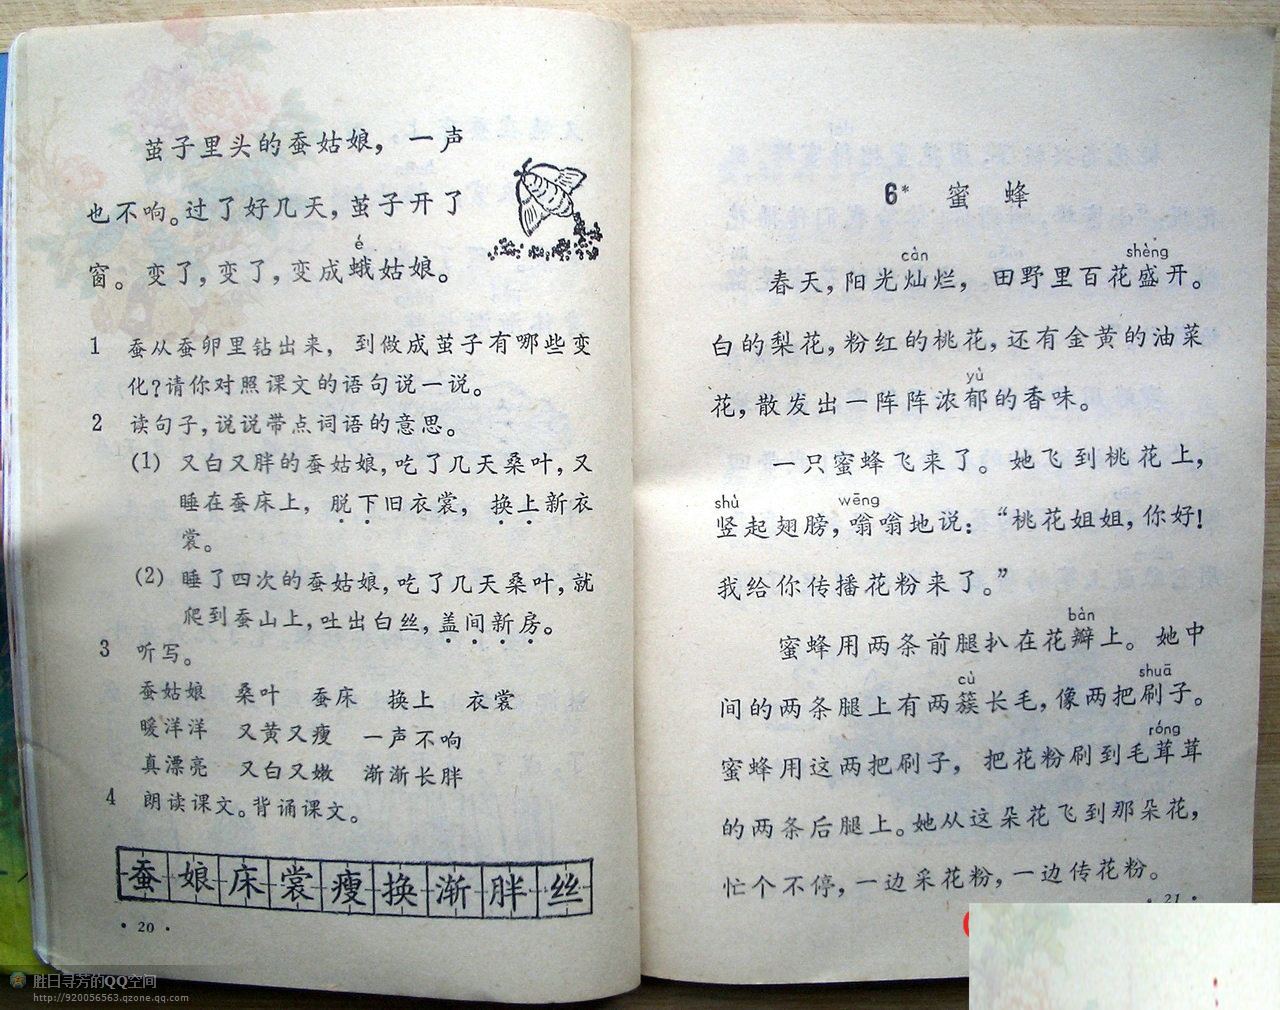 茧子里头的蚕姑娘，一声
也不响。过了好几天，茧子开了
é
窗。变了，变了，变成蛾姑娘。
1 蚕从蚕卵里钻出来，到做成茧子有哪些变
化？请你对照课文的语句说一说。
2 读句子，说说带点词语的意思。
(1) 又白又胖的蚕姑娘，吃了几天桑叶，又
睡在蚕床上，脱下旧衣裳，换上新衣
裳。
(2) 睡了四次的蚕姑娘，吃了几天桑叶，就
爬到蚕山上，吐出白丝，盖间新房。
3 听写。
蚕姑娘 桑叶 蚕床 换上 衣裳
暖洋洋 又黄又瘦 一声不响
真漂亮 又白又嫩 渐渐长胖
4 朗读课文。背诵课文。
蚕娘床裳瘦换渐胖丝
·20·
6* 蜜蜂
càn shèng
春天，阳光灿烂，田野里百花盛开。
白的梨花，粉红的桃花，还有金黄的油菜
yù
花，散发出一阵阵浓郁的香味。
一只蜜蜂飞来了。她飞到桃花上，
shù wēng
竖起翅膀，嗡嗡地说：“桃花姐姐，你好！
我给你传播花粉来了。”
bàn
蜜蜂用两条前腿扒在花瓣上。她中
cù shuā
间的两条腿上有两簇长毛，像两把刷子。
róng
蜜蜂用这两把刷子，把花粉刷到毛茸茸
的两条后腿上。她从这朵花飞到那朵花，
忙个不停，一边采花粉，一边传花粉。
·21·
胜日寻芳的QQ空间
http://920056563.qzone.qq.com